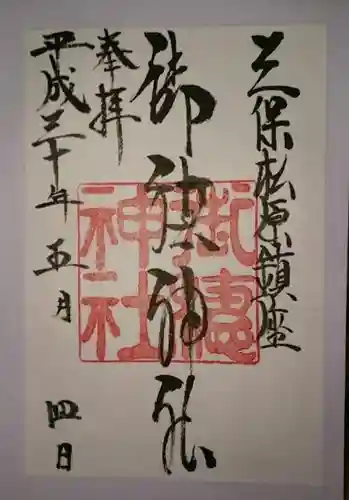 三保松原鎮座
御穂神社
奉拝
平成三十年 五月 四日
御穂神社